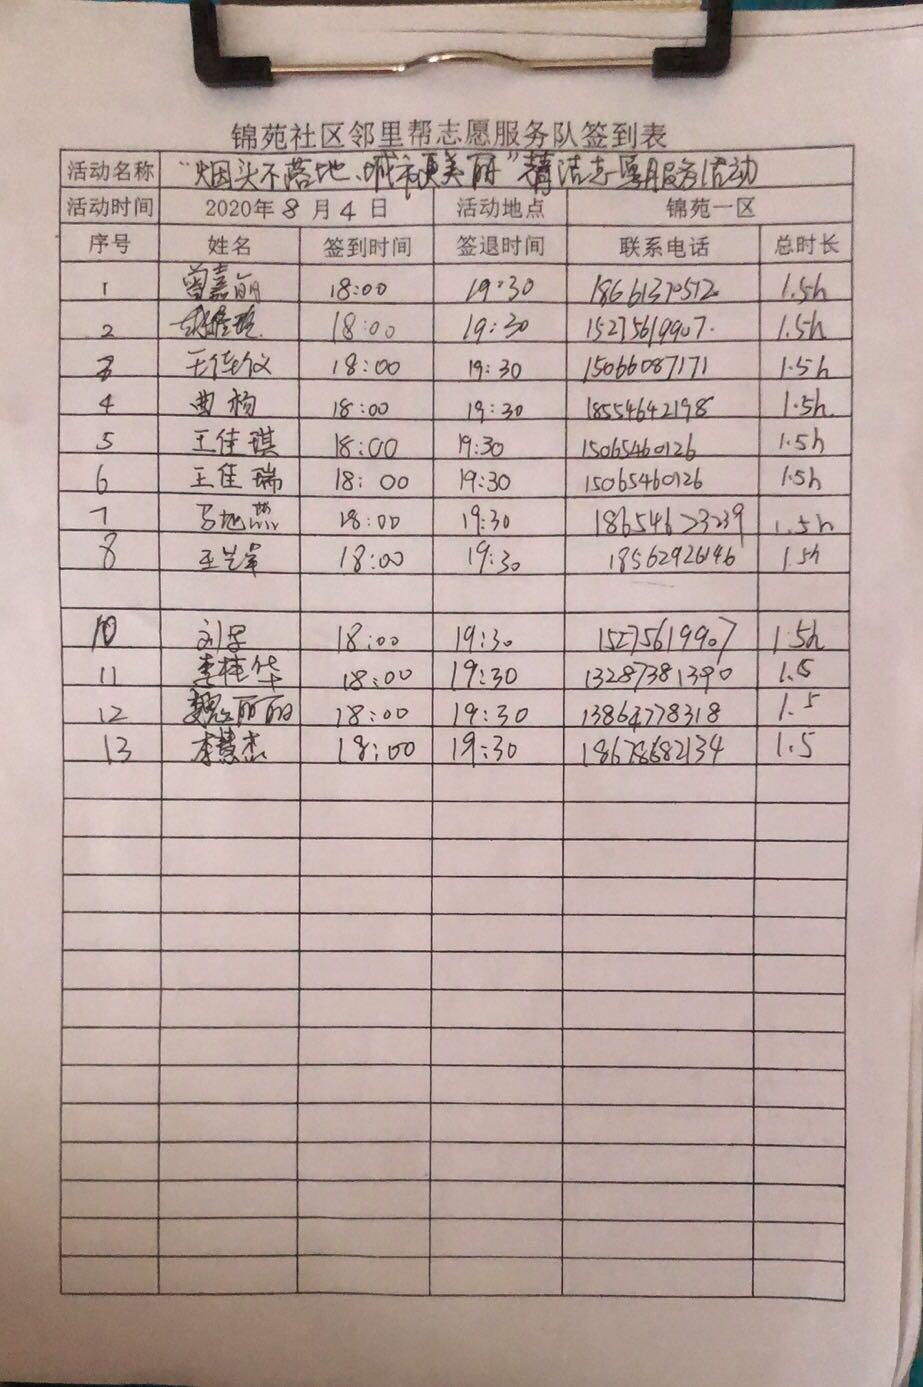 锦苑社区邻里帮志愿服务队签到表
活动名称 "烟头不落地、城市更美丽"清洁志愿服务活动
活动时间 2020年8月4日 活动地点 锦苑一区
序号 姓名 签到时间 签退时间 联系电话 总时长
1 曾嘉丽 18:00 19:30 18661370512 1.5h
2 18:00 19:30 15275619907. 1.5h
3 王佳仪 18:00 19:30 15066087171 1.5h
4 曲杨 18:00 19:30 18554642198 1.5h.
5 王佳琪 18:00 19:30 15065460126 1.5h
6 王佳瑞 18:00 19:30 15065460126 1.5h
7 18:00 19:30 18654623239 1.5h
8 18:00 19:30 18562926146 1.5h
10 18:00 19:30 15275619907 1.5h
11 李桂华 18:00 19:30 13287381390 1.5
12 魏丽丽 18:00 19:30 13864778318 1.5
13 李慧杰 18:00 19:30 18678682134 1.5